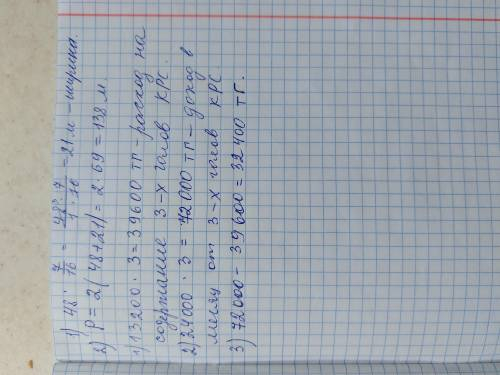 1) 48 · 7/16 = 48³ · 7 / 1 · 16 = 21 м – ширина.
2) P = 2(48+21) = 2 · 69 = 138 м.
1) 13200 · 3 = 39600 тг – расход на
содержание 3-х голов КРС.
2) 24000 · 3 = 72000 тг – доход в
месяц от 3-х голов КРС
3) 72000 – 39600 = 32400 тг.